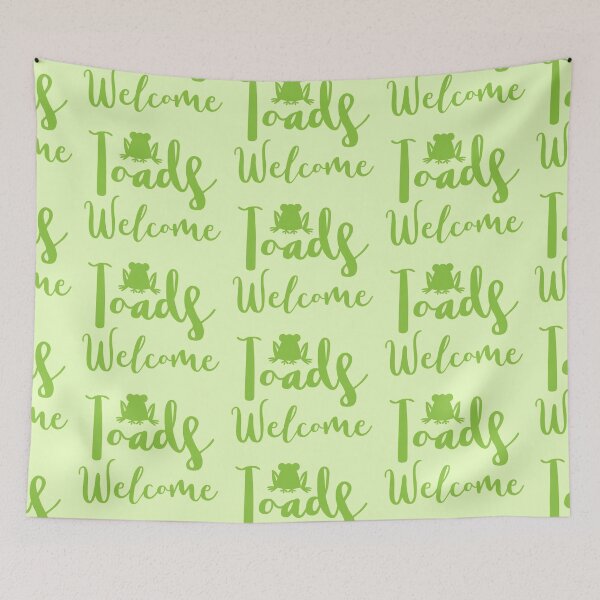 Welcome
Toads
Welcome
Toads
Welcome
Toads
Welcome
Toads
Welcome
Toads
Welcome
Toads
Welcome
Toads
Welcome
Toads
Welcome
Toads
Welcome
Toads
Welcome